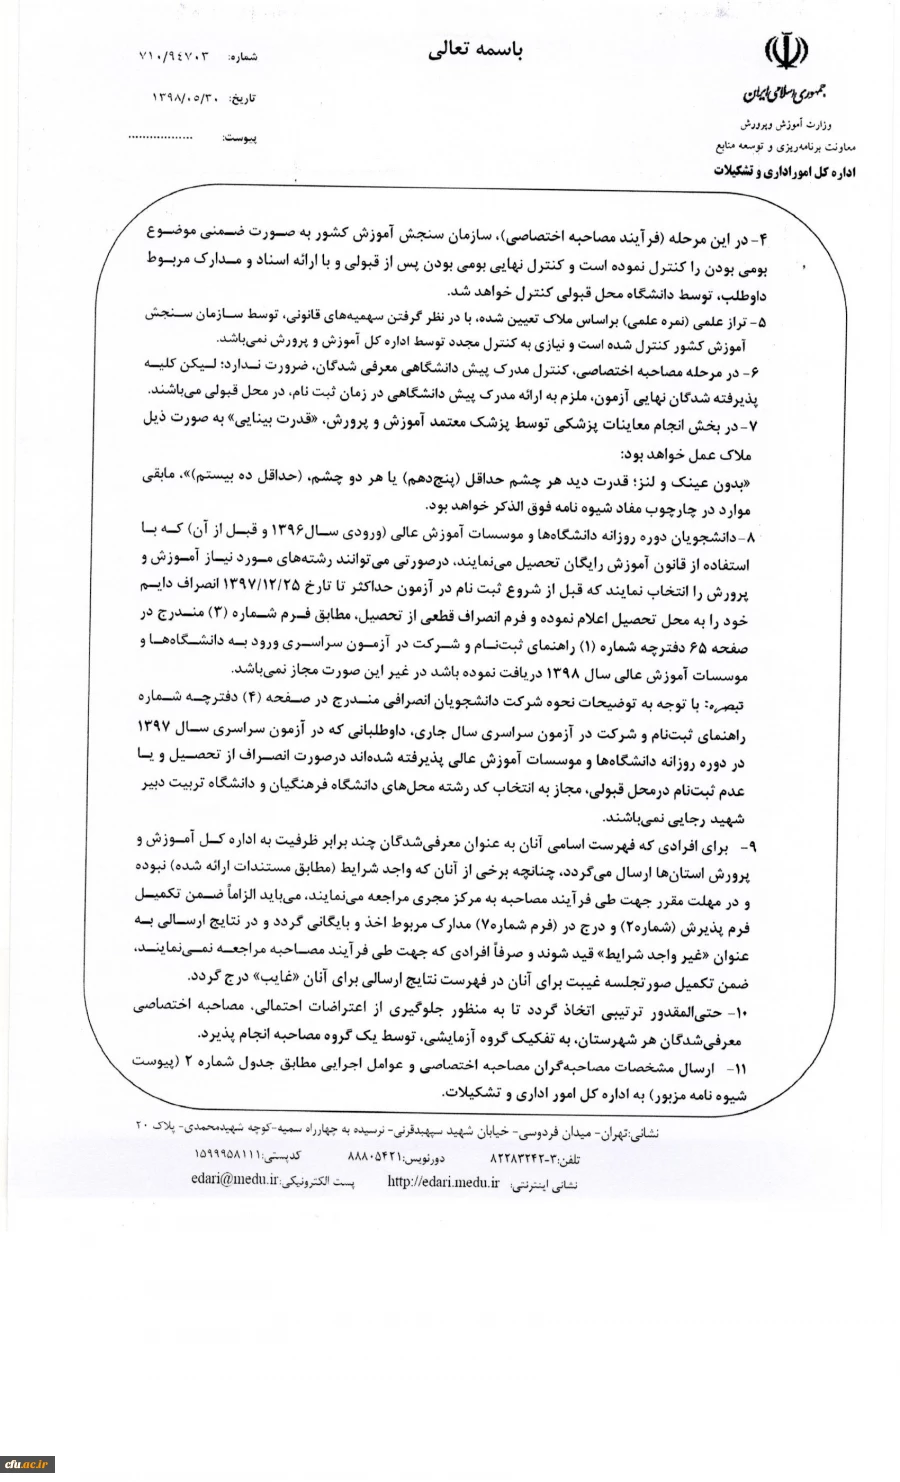 باسمه تعالی
جمهوری اسلامی ایران
وزارت آموزش وپرورش
معاونت برنامه‌ریزی و توسعه منابع
اداره کل امور اداری و تشکیلات
شماره: ۷۱۰/۹۴۷۰۳
تاریخ: ۱۳۹۸/۰۵/۳۰
پیوست: .................
۴- در این مرحله (فرآیند مصاحبه اختصاصی)، سازمان سنجش آموزش کشور به صورت ضمنی موضوع
بومی بودن را کنترل نموده است و کنترل نهایی بومی بودن پس از قبولی و با ارائه اسناد و مدارک مربوط
داوطلب، توسط دانشگاه محل قبولی کنترل خواهد شد.
۵- تراز علمی (نمره علمی) براساس ملاک تعیین شده، با در نظر گرفتن سهمیه‌های قانونی، توسط سازمان سنجش
آموزش کشور کنترل شده است و نیازی به کنترل مجدد توسط اداره کل آموزش و پرورش نمی‌باشد.
۶- در مرحله مصاحبه اختصاصی، کنترل مدرک پیش دانشگاهی معرفی شدگان، ضرورت ندارد؛ لیکن کلیه
پذیرفته شدگان نهایی آزمون، ملزم به ارائه مدرک پیش دانشگاهی در زمان ثبت نام، در محل قبولی می‌باشند.
۷- در بخش انجام معاینات پزشکی توسط پزشک معتمد آموزش و پرورش، «قدرت بینایی» به صورت ذیل
ملاک عمل خواهد بود:
«بدون عینک و لنز؛ قدرت دید هر چشم حداقل (پنج‌دهم) یا هر دو چشم، (حداقل ده بیستم)»، مابقی
موارد در چارچوب مفاد شیوه نامه فوق الذکر خواهد بود.
۸-دانشجویان دوره روزانه دانشگاه‌ها و موسسات آموزش عالی (ورودی سال۱۳۹۶ و قبل از آن) که با
استفاده از قانون آموزش رایگان تحصیل می‌نمایند، درصورتی می‌توانند رشته‌های مورد نیاز آموزش و
پرورش را انتخاب نمایند که قبل از شروع ثبت نام در آزمون حداکثر تا تارخ ۱۳۹۷/۱۲/۲۵ انصراف دایم
خود را به محل تحصیل اعلام نموده و فرم انصراف قطعی از تحصیل، مطابق فرم شماره (۳) مندرج در
صفحه ۶۵ دفترچه شماره (۱) راهنمای ثبت‌نام و شرکت در آزمون سراسری ورود به دانشگاه‌ها و
موسسات آموزش عالی سال ۱۳۹۸ دریافت نموده باشد در غیر این صورت مجاز نمی‌باشد.
تبصره: با توجه به توضیحات نحوه شرکت دانشجویان انصرافی مندرج در صفحه (۴) دفترچه شماره
راهنمای ثبت‌نام و شرکت در آزمون سراسری سال جاری، داوطلبانی که در آزمون سراسری سال ۱۳۹۷
در دوره روزانه دانشگاه‌ها و موسسات آموزش عالی پذیرفته شده‌اند درصورت انصراف از تحصیل و یا
عدم ثبت‌نام درمحل قبولی، مجاز به انتخاب کد رشته محل‌های دانشگاه فرهنگیان و دانشگاه تربیت دبیر
شهید رجایی نمی‌باشند.
۹- برای افرادی که فهرست اسامی آنان به عنوان معرفی‌شدگان چند برابر ظرفیت به اداره کل آموزش و
پرورش استان‌ها ارسال می‌گردد، چنانچه برخی از آنان که واجد شرایط (مطابق مستندات ارائه شده) نبوده
و در مهلت مقرر جهت طی فرآیند مصاحبه به مرکز مجری مراجعه می‌نمایند، می‌باید الزاماً ضمن تکمیل
فرم پذیرش (شماره۲) و درج در (فرم شماره۷) مدارک مربوط اخذ و بایگانی گردد و در نتایج ارسالی به
عنوان «غیر واجد شرایط» قید شوند و صرفاً افرادی که جهت طی فرآیند مصاحبه مراجعه نمی‌نمایند،
ضمن تکمیل صورتجلسه غیبت برای آنان در فهرست نتایج ارسالی برای آنان «غایب» درج گردد.
۱۰- حتی‌المقدور ترتیبی اتخاذ گردد تا به منظور جلوگیری از اعتراضات احتمالی، مصاحبه اختصاصی
معرفی‌شدگان هر شهرستان، به تفکیک گروه آزمایشی، توسط یک گروه مصاحبه انجام پذیرد.
۱۱- ارسال مشخصات مصاحبه‌گران مصاحبه اختصاصی و عوامل اجرایی مطابق جدول شماره ۲ (پیوست
شیوه نامه مزبور) به اداره کل امور اداری و تشکیلات.
نشانی:تهران- میدان فردوسی- خیابان شهید سپهبدقرنی- نرسیده به چهارراه سمیه-کوچه شهیدمحمدی- پلاک ۲۰
تلفن:۳-۸۲۲۸۳۲۴۲ دورنویس:۸۸۸۰۵۴۲۱ کدپستی:۱۵۹۹۹۵۸۱۱۱
نشانی اینترنتی: http://edari.medu.ir پست الکترونیکی:edari@medu.ir
cfu.ac.ir